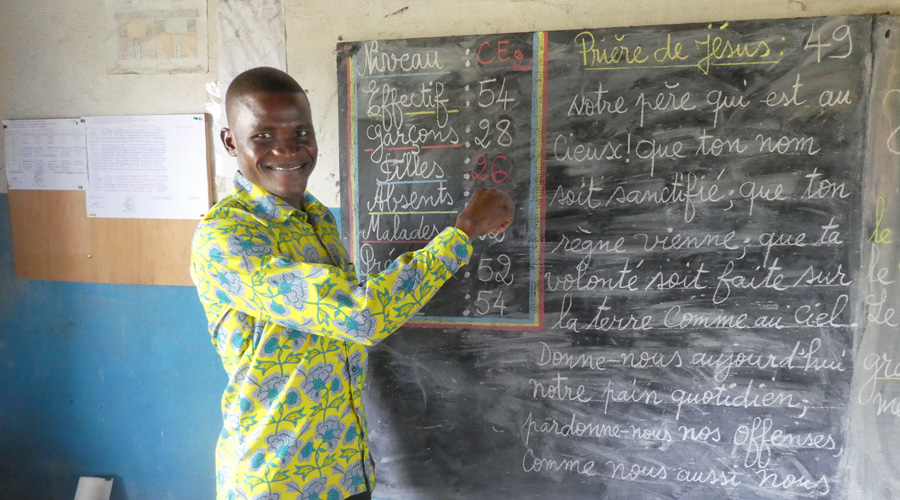 Niveau : CE2
Effectif : 54
garçons : 28
Filles : 26
Absents
Malades
: 52
: 54
Prière de Jésus : 49
Notre père qui est au
Cieux! que ton nom
soit sanctifié; que ton
règne vienne; que ta
volonté soit faite sur
la terre Comme au Ciel
Donne-nous aujourd'hui
notre pain quotidien;
pardonne-nous nos offenses,
Comme nous aussi nous
le
le
Le